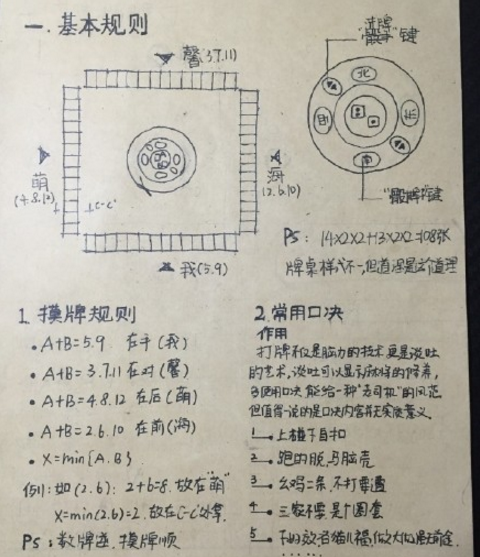 一.基本规则
馨(3.7.11)
萌
(4.8.12)
C-C'
海
(2.6.10)
我(5.9)
"骰子"键
北
西
南
PS: 14×2×2+13×2×2=108张
牌桌样式不一,但道理是这个道理
1. 摸牌规则
• A+B=5.9 在手(我)
• A+B=3.7.11 在对(馨)
• A+B=4.8.12 在后(萌)
• A+B=2.6.10 在前(海)
• X=min{A.B}
例:如(2.6): 2+6=8. 放在"萌"
X=min(2.6)=2. 放在C-C'处拿.
PS: 数牌逆. 摸牌顺
2. 常用口决
作用
打牌不仅是脑力的技术更是谈吐
的艺术,谈吐可以显示
使用口决能给一种"老司机"的风范
但值得一说的是口决内容并无实质意义.
1. 上碰下自扣
2. 跑的脱,马脑壳
3. 幺鸡二条,不打要遭
4. 三家不要是个圈套
5.
......